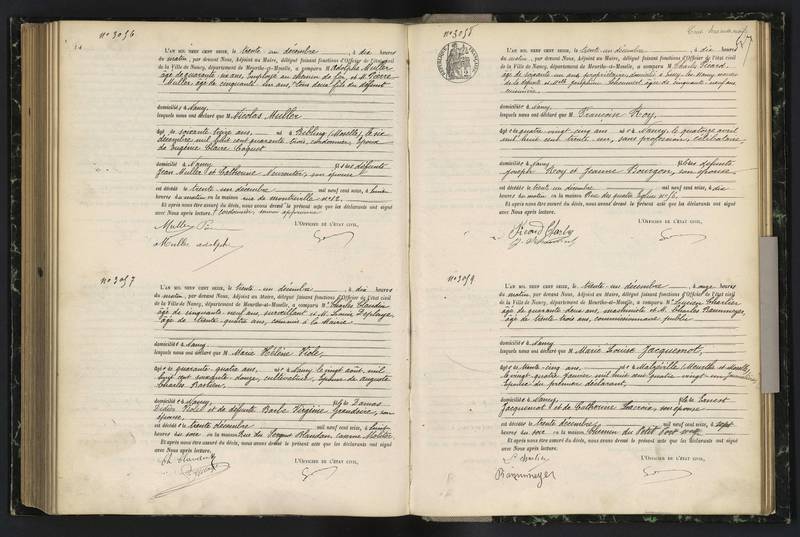 n° 3056
L'AN MIL NEUF CENT SEIZE, le trente un décembre, à dix heures
du matin, par devant Nous, Adjoint au Maire, délégué faisant fonctions d'Officier de l'état civil
de la Ville de Nancy, département de Meurthe-et-Moselle, a comparu M. Adolphe Muller
âgé de quarante six ans, employé au chemin de fer, et M. Pierre
Muller âgé de cinquante un ans, tous deux fils du défunt
domiciliés à Nancy
lesquels nous ont déclaré que M Nicolas Muller
âgé de soixante treize ans, né à Bebling (Moselle), le six
décembre mil huit cent quarante trois, cordonnier, époux
de Eugénie Claire
domicilié à Nancy fils des défunts
Jean Muller et Catherine, son épouse
est décédé le trente un décembre mil neuf cent seize, à
heures du matin en la maison rue de n° 12
Et après nous être assuré du décès, nous avons dressé le présent acte que les déclarants ont signé
avec Nous après lecture.
L'OFFICIER DE L'ÉTAT CIVIL,
Muller P.
Muller adolphe
n° 3057
L'AN MIL NEUF CENT SEIZE, le trente un décembre, à dix heures
du matin, par devant Nous, Adjoint au Maire, délégué faisant fonctions d'Officier de l'état civil
de la Ville de Nancy, département de Meurthe-et-Moselle, a comparu M. Charles Claudin
âgé de cinquante neuf ans, surveillant et M. Louis
âgé de trente quatre ans, commis à la Mairie
domiciliés à Nancy
lesquels nous ont déclaré que M Marie Hélène Viole,
âgée de quarante quatre ans, née à Nancy, le vingt août mil
huit cent soixante douze, cultivatrice, épouse de Auguste
Charles
domiciliée à Nancy fille de Damas
Didier Viole et de défunte Barbe Virginie, son
épouse
est décédée le trente décembre mil neuf cent seize, à
heures du soir en la maison Rue du Sergent Blandan, caserne Molitor
Et après nous être assuré du décès, nous avons dressé le présent acte que les déclarants ont signé
avec Nous après lecture.
L'OFFICIER DE L'ÉTAT CIVIL,
Ch Claudin
n° 3058
L'AN MIL NEUF CENT SEIZE, le trente un décembre, à dix heures
du matin, par devant Nous, Adjoint au Maire, délégué faisant fonctions d'Officier de l'état civil
de la Ville de Nancy, département de Meurthe-et-Moselle, a comparu M. Charles Picard
âgé de soixante un ans propriétaire domicilié à
âgée de cinquante neuf ans
domiciliés à Nancy
lesquels nous ont déclaré que M Françoise Roy,
âgée de quatre vingt cinq ans née à Nancy, le quatorze avril
mil huit cent trente un, sans profession, célibataire
domiciliée à Nancy fille des défunts
Joseph Roy et Jeanne Bourgon, son épouse
est décédée le trente un décembre mil neuf cent seize, à dix
heures du matin en la maison Rue des quatre Eglises n° 16
Et après nous être assuré du décès, nous avons dressé le présent acte que les déclarants ont signé
avec Nous après lecture.
L'OFFICIER DE L'ÉTAT CIVIL,
Picard Charles
n° 3059
L'AN MIL NEUF CENT SEIZE, le trente un décembre, à onze heures
du matin, par devant Nous, Adjoint au Maire, délégué faisant fonctions d'Officier de l'état civil
de la Ville de Nancy, département de Meurthe-et-Moselle, a comparu M. Lucien
âgé de quarante deux ans, machiniste et M. Charles
âgé de trente trois ans, commissionnaire public
domiciliés à Nancy
lesquels nous ont déclaré que M Marie Louise Jacquemot,
âgée de trente cinq ans, née à Malzéville (Meurthe et Moselle),
le vingt quatre janvier mil huit cent quatre vingt un
épouse du premier déclarant,
domiciliée à Nancy, fille de Ernest
Jacquemot et de Catherine, son épouse
est décédée le trente décembre mil neuf cent seize, à sept
heures du soir en la maison Chemin du Petit
Et après nous être assuré du décès, nous avons dressé le présent acte que les déclarants ont signé
avec Nous après lecture.
L'OFFICIER DE L'ÉTAT CIVIL,